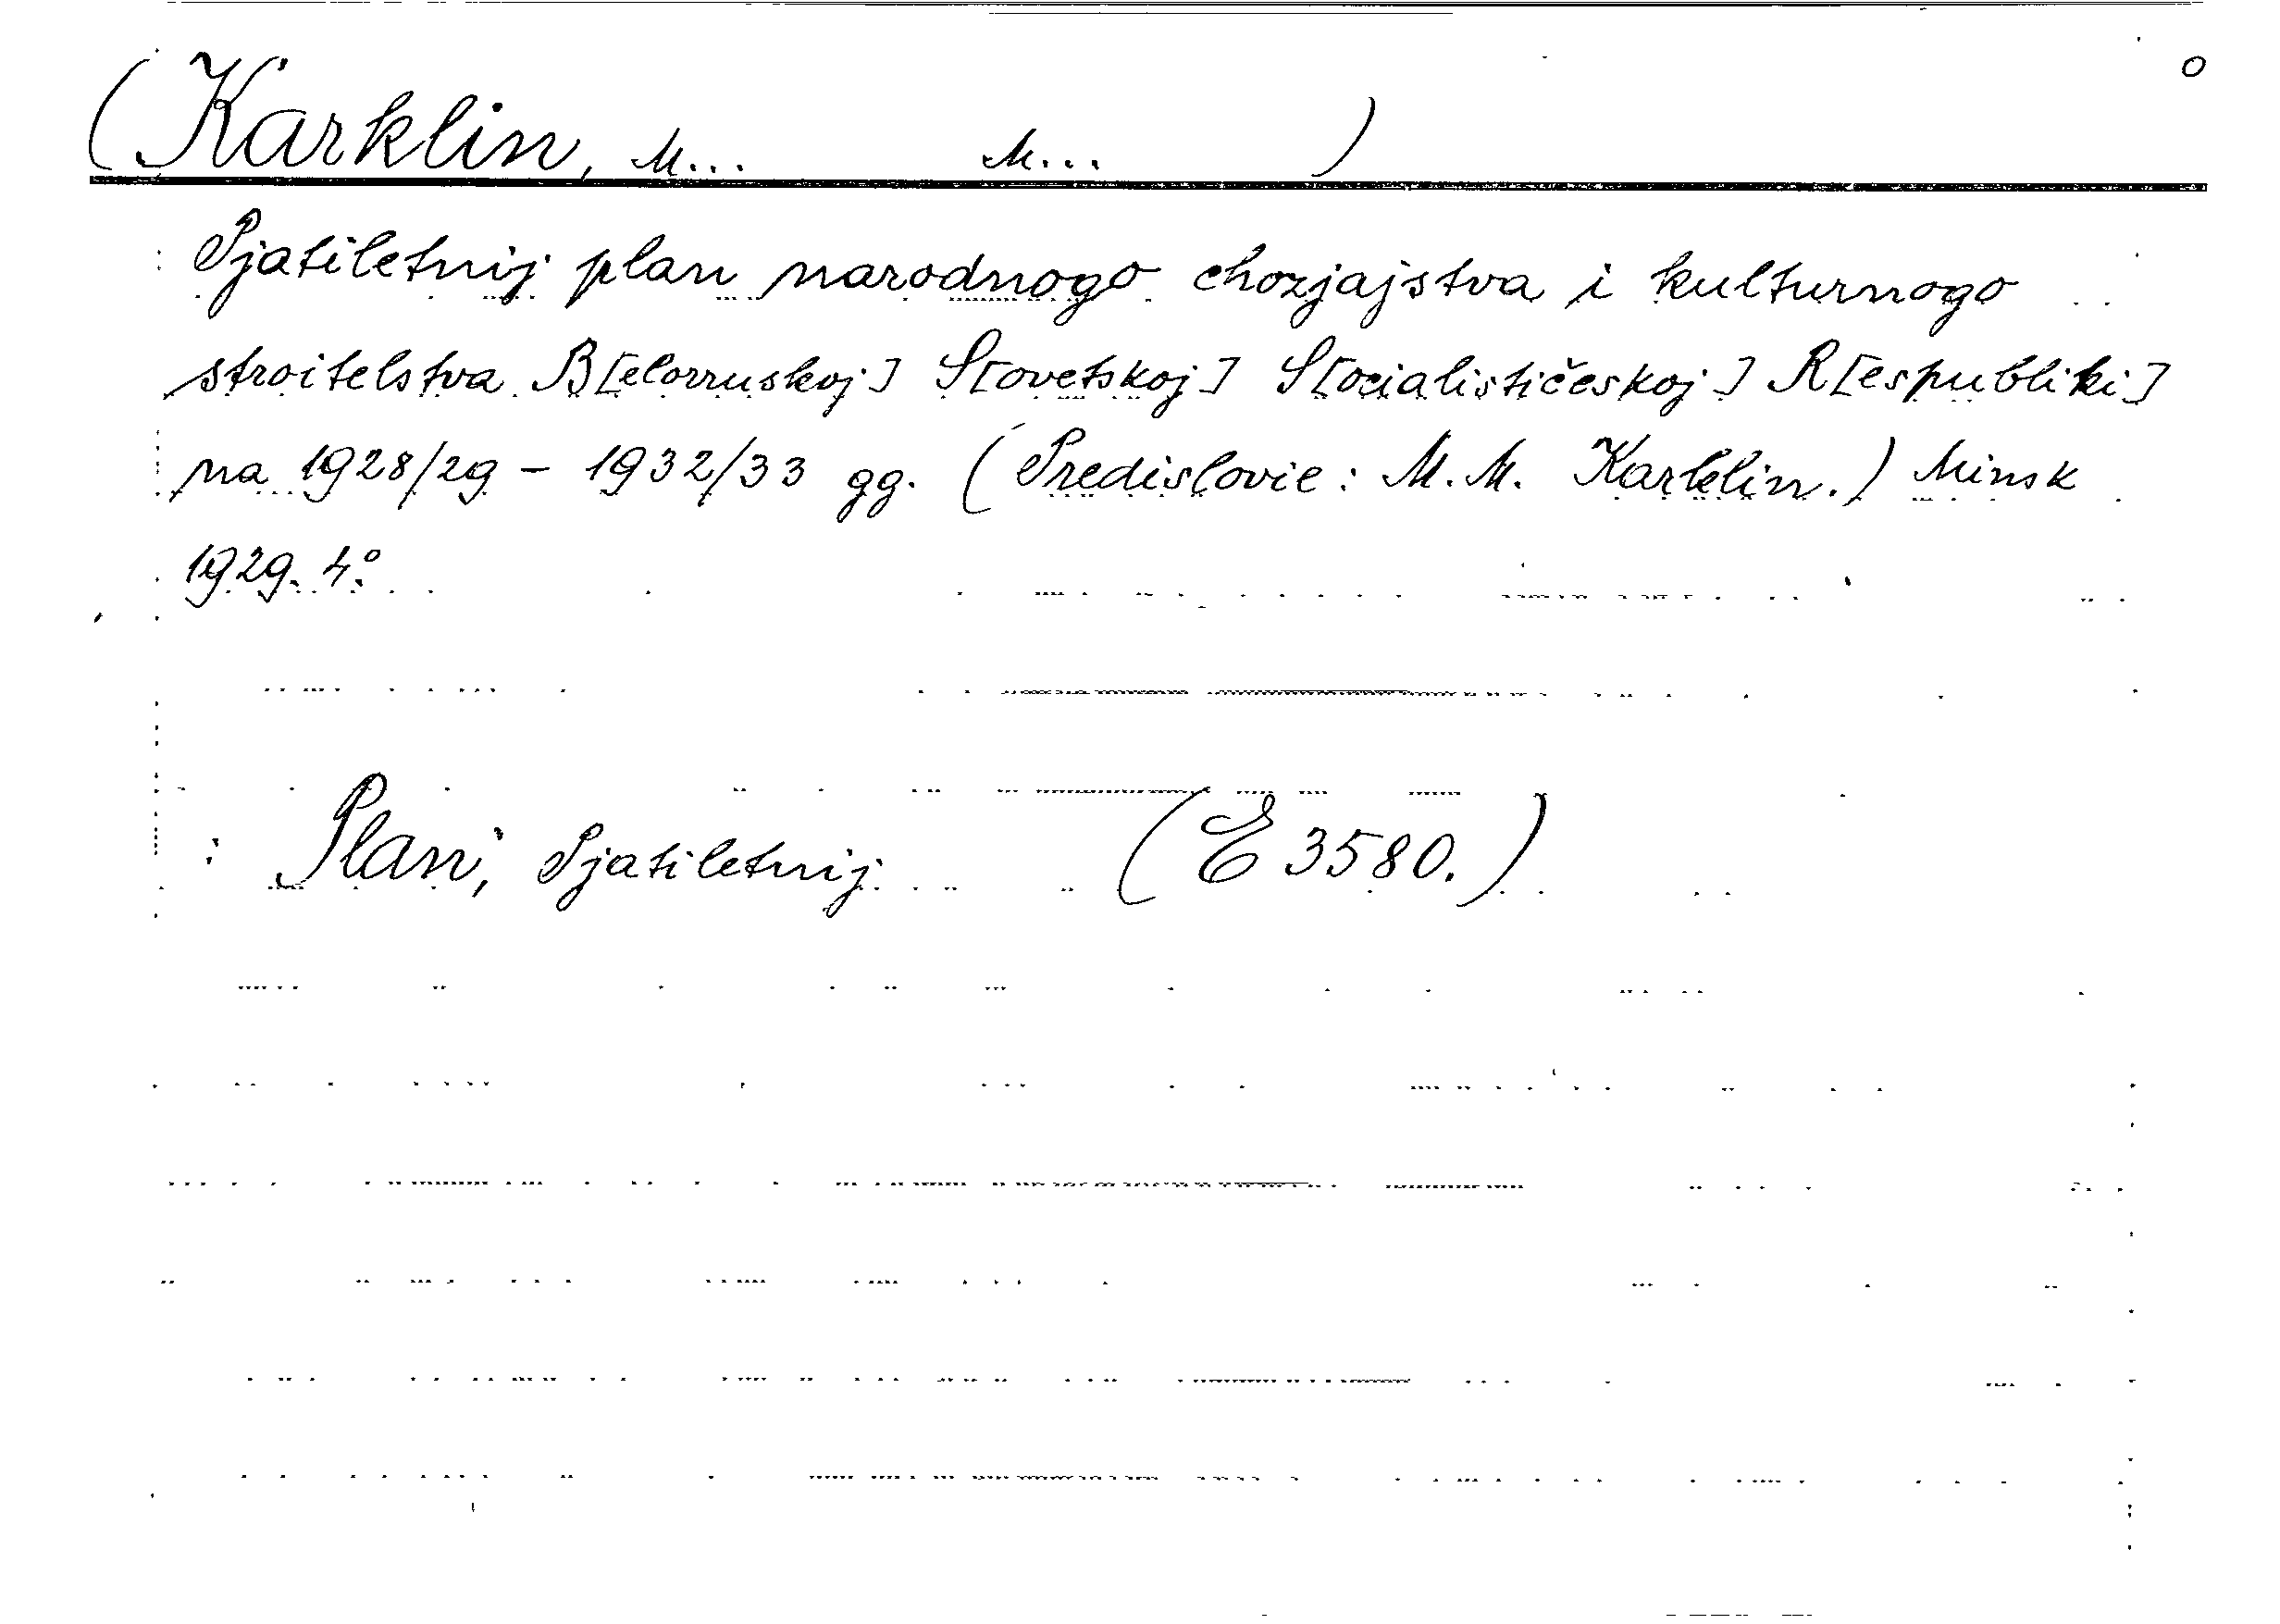 o
(Karklin, M... M... )
Pjatiletnij plan narodnogo chozjajstva i kulturnogo
stroitelstva B[elorruskoj] S[ovetskoj] S[ocialističeskoj] R[espubliki]
na 1928/29 – 1932/33 gg. (Predislovie: M. M. Karklin.) Minsk
1929. 4°.
: Plan, Pjatiletnij (E 3580.)